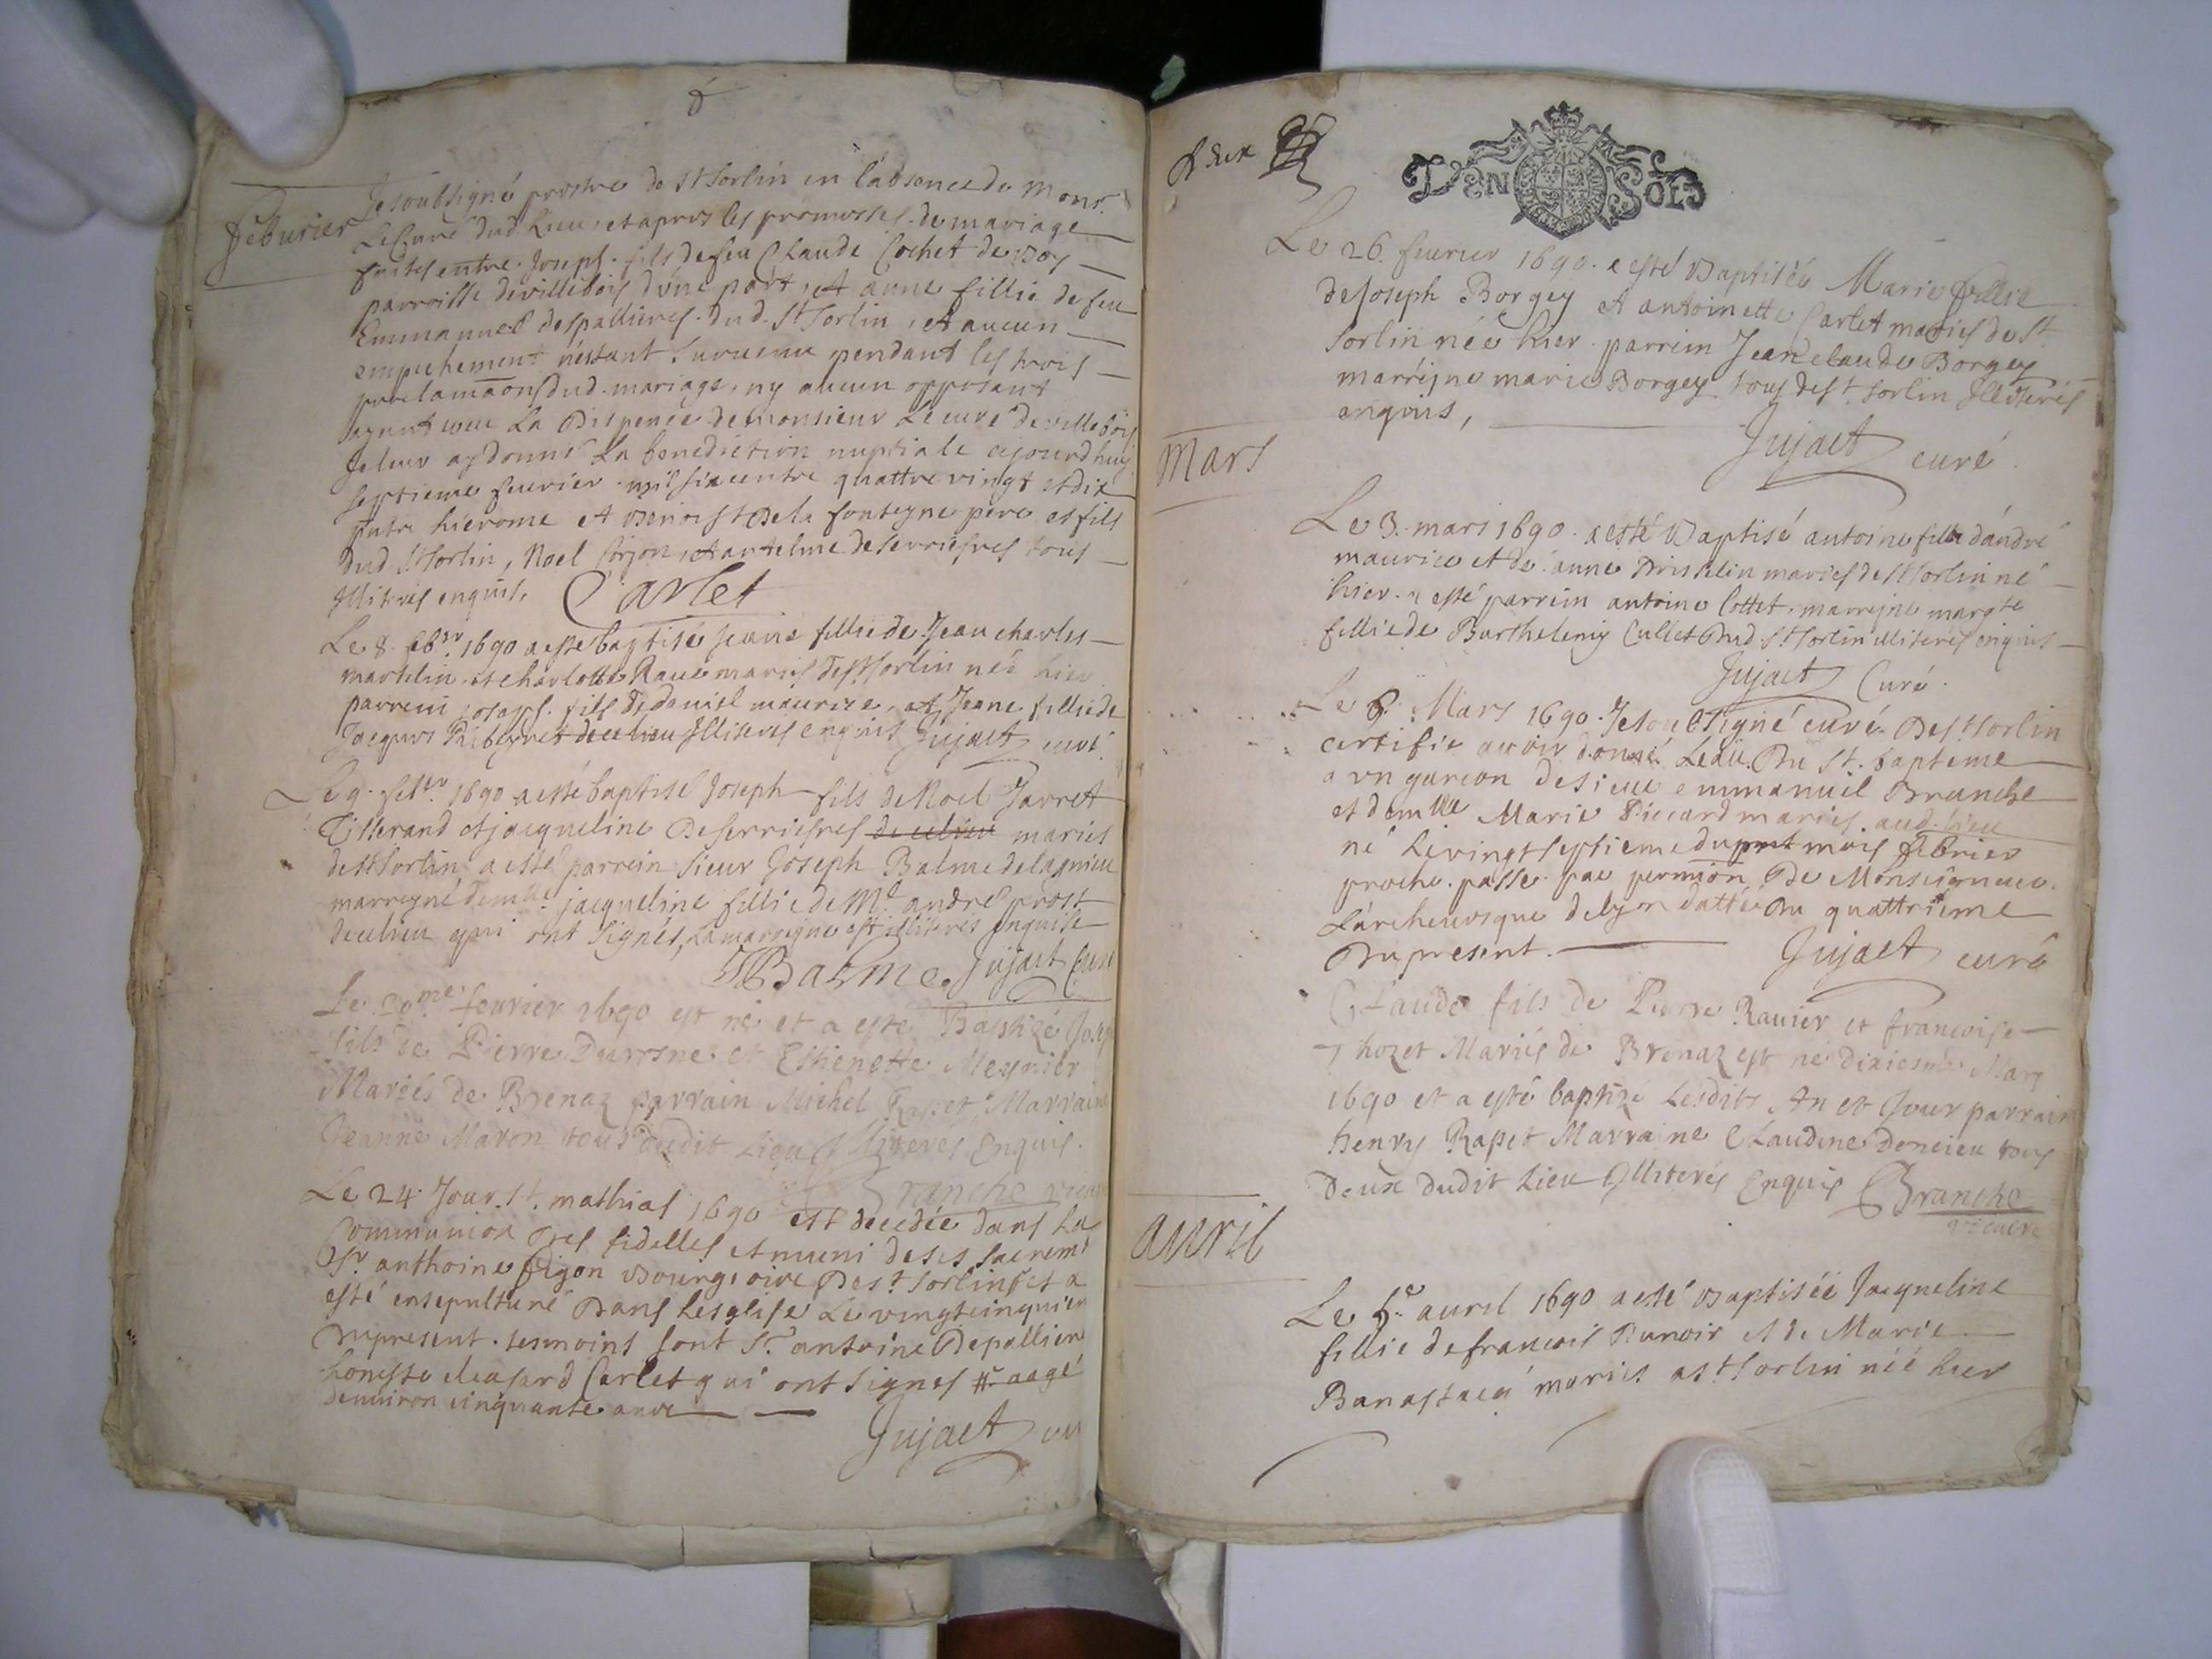 Je soubsigné prestre de St Sorlin en l'absence de Monsr.
Feburier
Le Curé dud. Lieu, et apres les promesses de mariage
faites entre Joseph fils de feu Claude Cochet de
parroisse de villebois d'une part, et anne fillie de feu
Emmanuel despallieres dud. St Sorlin, et aucun
empechement n'estant survenu pendant les trois
proclamaons dud. mariage, ny aucun opposant
ayant veu La Dispence de monsieur Le curé de villebois
Je leur ay donné La benediction nuptiale cejourdhuy
septieme feurier mil six centre quattre vingt et dix
hierome et Benoist De la fonteyne pere et fils
dud. St Sorlin, Noel et antelme de serriesres tous
Illiterés enquis. Carlet
Le 8. febvr. 1690 a este baptisé Jeane fillie de Jean charles
martelin et charlotte Raué mariés de St Sorlin néé hier
parrein Joseph fils de daniel maurice, et Jeane fillie de
Jacques Ribeyret de ce lieu Illiteres enquis Jujact curé
Le 9. febvr. 1690 a esté baptisé Joseph fils de Noel Jarret
Tisserand et jacqueline Deserriesres de ce lieu mariés
de St Sorlin a esté parrein sieur Joseph Balme de lagnieu
marreyne demlle jacqueline fillie de Me. andré prost
de ce lieu qui ont signés, La marreyne est illiterés enquise
JBalme. Jujact Curé
Le 20me. feurier 1690 est né et a esté Baptizé Jose
fils de Pierre Duresne et Estienette Meynier
Mariés de Brenaz parrain Michel Rapet Marraine
Jeanne Maron tous dudit Lieu Illiteres Enquis.
Branche vicaire
Le 24. Jour St. mathias 1690 est decedée dans La
Communion Des fidelles et muni de ses sacremt
Sr. anthoine Bourgeoire De St Sorlin et a
esté ensepulturé Dans Lesglise Le vingtcinquiem
Du present. tesmoins sont Sr. antoine Depalliere
honeste Carlet qui ont signes aagé
denuiron cinquante anne
Jujact cu
deux
DEN SOLS
Le 26. feurier 1690. a esté Baptiséé Marie fillie
de Joseph Borgey et antoinette Carlet mariés de St
Sorlin néé hier parrein Jean claude Borgey
marréyne marie Borgey tous de St sorlin Illiterés
enquis,
Jujact curé.
Mars
Le 3. mars 1690. a esté Baptisé antoine fils d'andré
maurice et de anne mariés de St Sorlin né
hier. a esté parrein antoine Cottet, marreyne margte
fillie de Barthelemy Cullet Dud. St Sorlin illiterés enquis
Jujact Curé.
Le 8. Mars 1690. Je soubsigné curé De St Sorlin
certifie auoir donné L'eau Du St. baptéme
a vn garcon de sieur emmanuël Branche
et demlle Marie Piccard mariés aud. Lieu
né Le vingt septieme du mois febrier
proche passé par permiõn De Monseigneur
L'archeuesque de lyon dattée du quattrieme
Du present.
Jujact curé
Claude fils de Pierre Rauier et francoise
Thozet Mariés de Brenaz est né dixiesme Mars
1690 et a esté baptizé Lesdits An et Jour parrain
henry Rapet Marraine Claudine doncieu tous
Deux dudit Lieu Illiterés Enquis Branche
vicaire
Avril
Le 5e auril 1690 a esté Baptiséé Jacqueline
fillie de francois Runoir et de Marie
mariés a St Sorlin néé hier